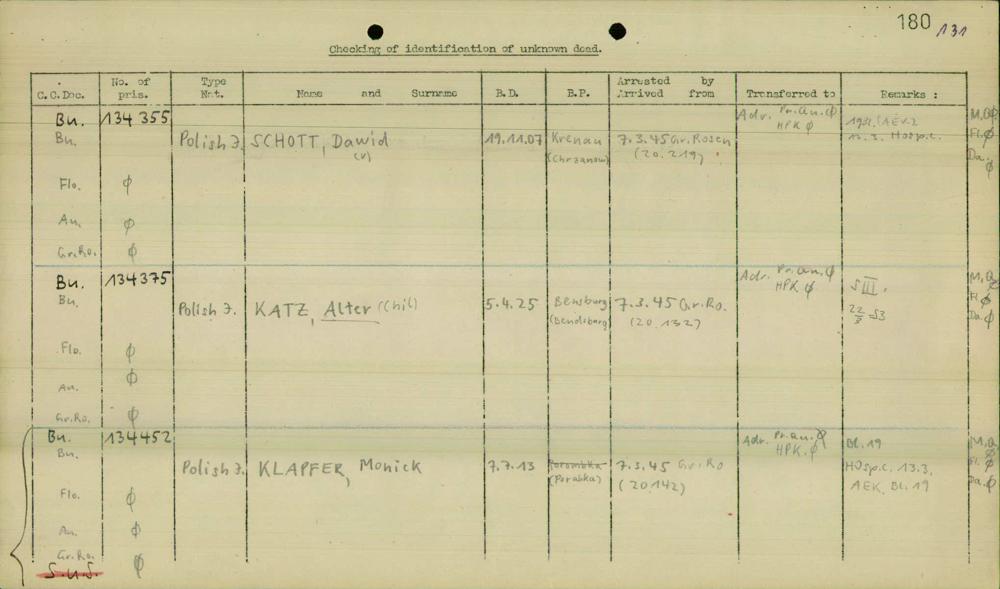 180 131
Checking of identification of unknown dead.
C.C.Doc. No. of pris. Type Nat. Name and Surname B.D. B.P. Arrested by Arrived from Transferred to Remarks :
Bu. 134 355 Adr. Pr.an. ϕ M. ϕ
HPK ϕ
Bu. Polish J. SCHOTT, Dawid 19.11.07 Krenau 7.3.45 Gr. Rosen 12.3. Hosp.c. Fl. ϕ
(v) (Chrzanow) (20.219) Da. ϕ
Flo. ϕ
An. ϕ
Gr.Ro. ϕ
Bu. 134375 Adr. Pr.an. ϕ M.
HPK ϕ S III.
Bu. Polish J. KATZ, Alter (Chil) 5.4.25 Bensburg 7.3.45 Gr.Ro. 22/3 53 Fl. ϕ
(Bendsburg) (20.132) Da. ϕ
Flo. ϕ
An. ϕ
Gr.Ro. ϕ
Bu. 134452 Adr. Pr.an. ϕ Bl. 19 M.
Bu. HPK. ϕ
Polish J. KLAPFER, Moniek 7.7.13 7.3.45 Gr.Ro Hosp.c. 13.3. Fl. ϕ
(Porabka) (20.142) AEK, Bl. 19 Da. ϕ
Flo. ϕ
An. ϕ
Gr.Ro. ϕ
S.u.S.